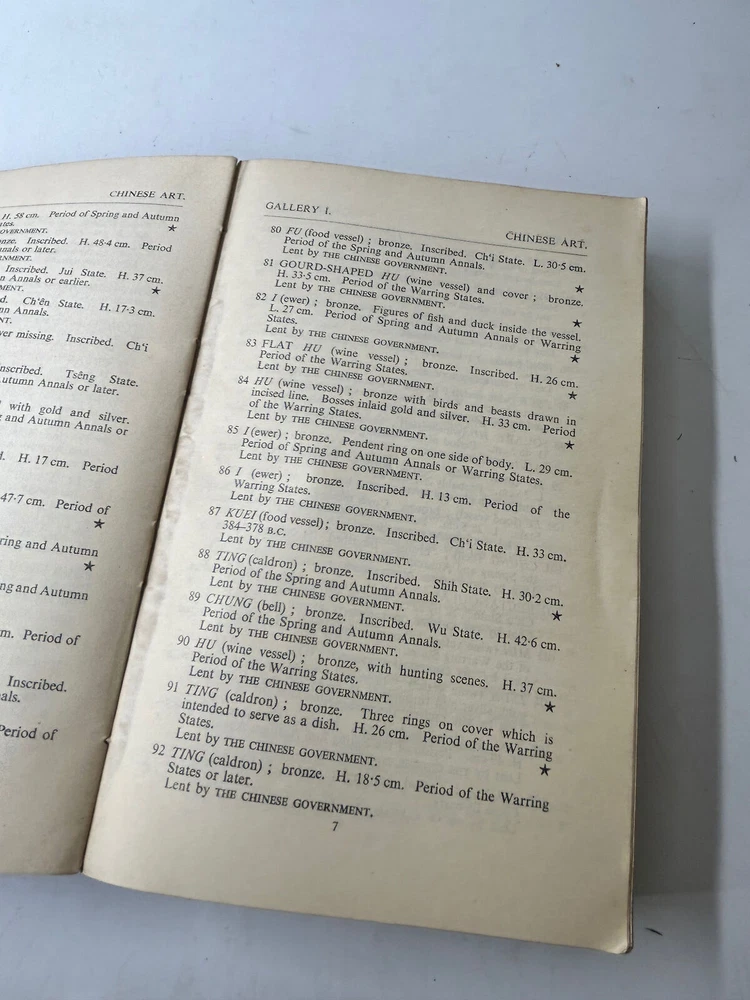 CHINESE ART.
H. 58 cm. Period of Spring and Autumn
★
Inscribed. H. 48·4 cm. Period
nnals or later.
Inscribed. Jui State. H. 37 cm.
Annals or earlier.
★
Ch'ên State. H. 17·3 cm.
missing. Inscribed. Ch'i
Tsêng State.
Annals or later.
with gold and silver.
and Autumn Annals or
H. 17 cm. Period
47·7 cm. Period of
★
and Autumn
★
and Autumn
Period of
Inscribed.
Period of
GALLERY I.
CHINESE ART.
80 FU (food vessel) ; bronze. Inscribed. Ch'i State. L. 30·5 cm.
Period of the Spring and Autumn Annals.
Lent by THE CHINESE GOVERNMENT.
★
81 GOURD-SHAPED HU (wine vessel) and cover ; bronze.
H. 33·5 cm. Period of the Warring States.
Lent by THE CHINESE GOVERNMENT.
★
82 I (ewer) ; bronze. Figures of fish and duck inside the vessel.
L. 27 cm. Period of Spring and Autumn Annals or Warring
States.
Lent by THE CHINESE GOVERNMENT.
★
83 FLAT HU (wine vessel) ; bronze. Inscribed. H. 26 cm.
Period of the Warring States.
Lent by THE CHINESE GOVERNMENT.
★
84 HU (wine vessel) ; bronze with birds and beasts drawn in
incised line. Bosses inlaid gold and silver. H. 33 cm. Period
of the Warring States.
Lent by THE CHINESE GOVERNMENT.
★
85 I (ewer) ; bronze. Pendent ring on one side of body. L. 29 cm.
Period of Spring and Autumn Annals or Warring States.
Lent by THE CHINESE GOVERNMENT.
86 I (ewer) ; bronze. Inscribed. H. 13 cm. Period of the
Warring States.
Lent by THE CHINESE GOVERNMENT.
87 KUEI (food vessel) ; bronze. Inscribed. Ch'i State. H. 33 cm.
384–378 B.C.
Lent by THE CHINESE GOVERNMENT.
88 TING (caldron) ; bronze. Inscribed. Shih State. H. 30·2 cm.
Period of the Spring and Autumn Annals.
Lent by THE CHINESE GOVERNMENT.
★
89 CHUNG (bell) ; bronze. Inscribed. Wu State. H. 42·6 cm.
Period of the Spring and Autumn Annals.
Lent by THE CHINESE GOVERNMENT.
90 HU (wine vessel) ; bronze, with hunting scenes. H. 37 cm.
Period of the Warring States.
Lent by THE CHINESE GOVERNMENT.
★
91 TING (caldron) ; bronze. Three rings on cover which is
intended to serve as a dish. H. 26 cm. Period of the Warring
States.
Lent by THE CHINESE GOVERNMENT.
★
92 TING (caldron) ; bronze. H. 18·5 cm. Period of the Warring
States or later.
Lent by THE CHINESE GOVERNMENT.
7